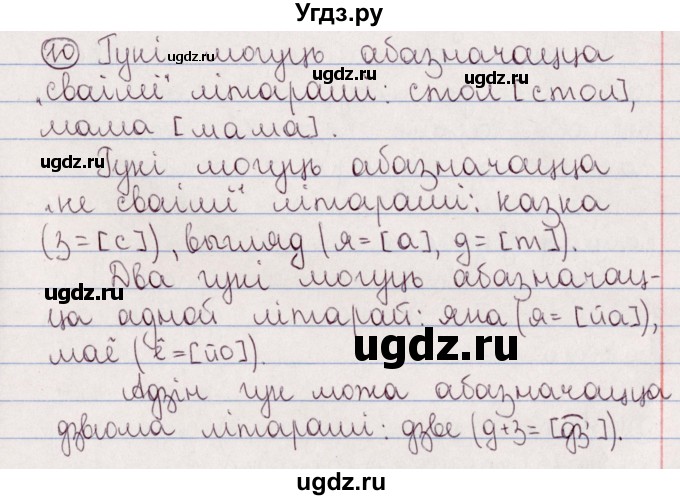 Угдз.ру
10 Гукі могуць абазначацца
„сваімі“ літарамі: стол [стол],
мама [мама].
Гукі могуць абазначацца
„не сваімі“ літарамі: казка
(з=[с]), выгляд (я=[а], д=[т]).
Два гукі могуць абазначац-
ца адной літарай: яна (я=[йа]),
маё (ё=[йо]).
Адзін гук можа абазначацца
дзвюма літарамі: дзве (д+з=[дз']).
ugdz.ru
ugdz.ru
ugdz.ru
ugdz.ru
ugdz.ru
ugdz.ru
ugdz.ru
ugdz.ru
ugdz.ru